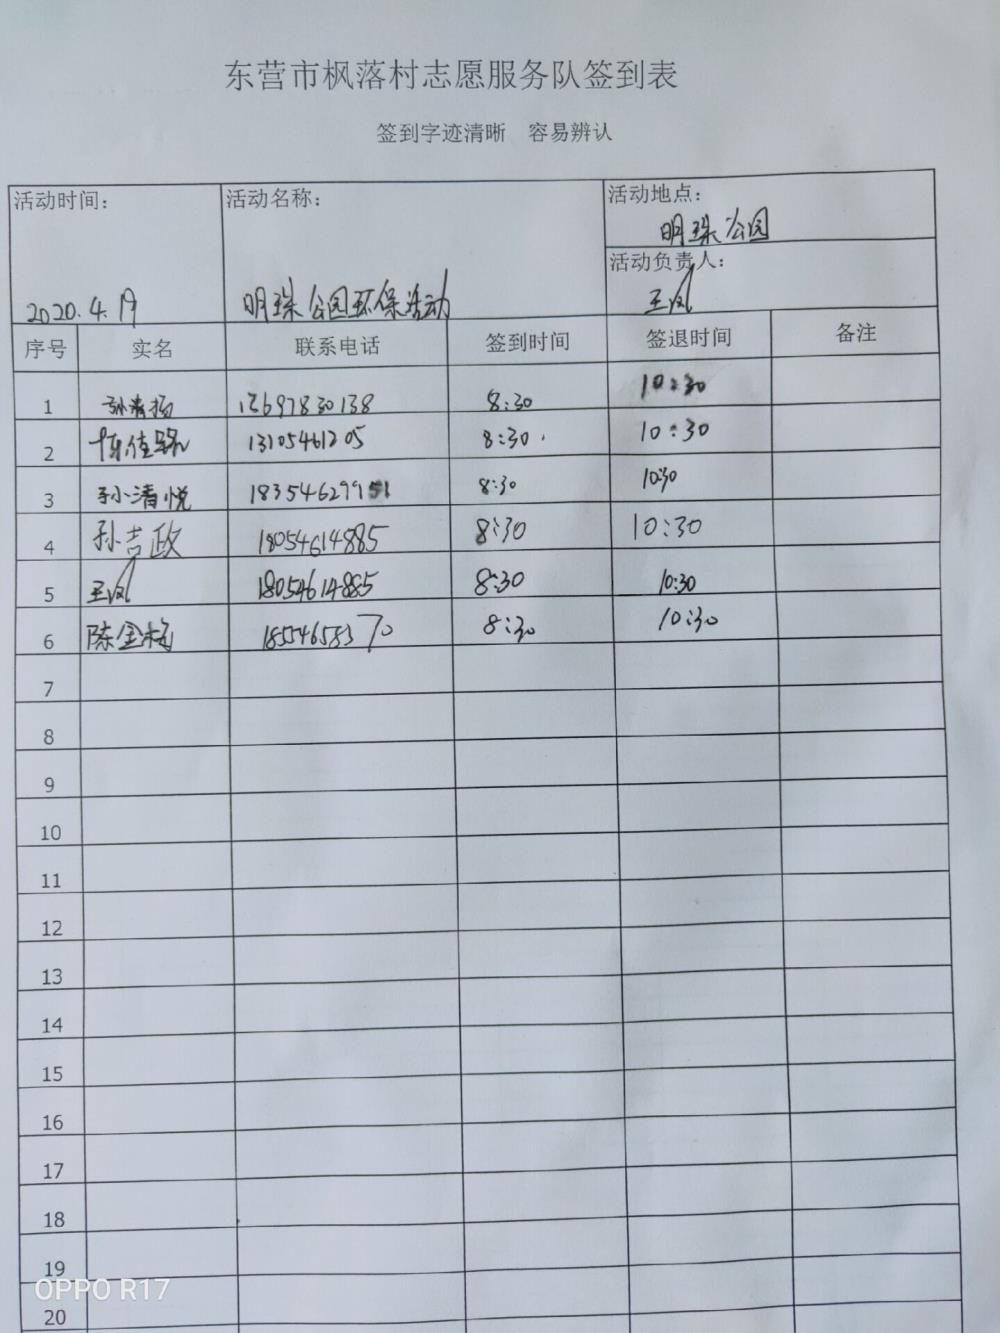 东营市枫落村志愿服务队签到表
签到字迹清晰 容易辨认
活动时间: 活动名称: 活动地点:
明珠公园
活动负责人:
2020.4.19 明珠公园环保活动 王凤
序号 实名 联系电话 签到时间 签退时间 备注
1 孙清扬 13697830138 8:30 10:30
2 陈佳 13105461205 8:30. 10:30
3 孙清悦 18354629951 8:30 10:30
4 孙吉政 18054614885 8:30 10:30
5 王凤 18054614885 8:30 10:30
6 陈金梅 18554658370 8:30 10:30
7
8
9
10
11
12
13
14
15
16
17
18
19
OPPO R17
20